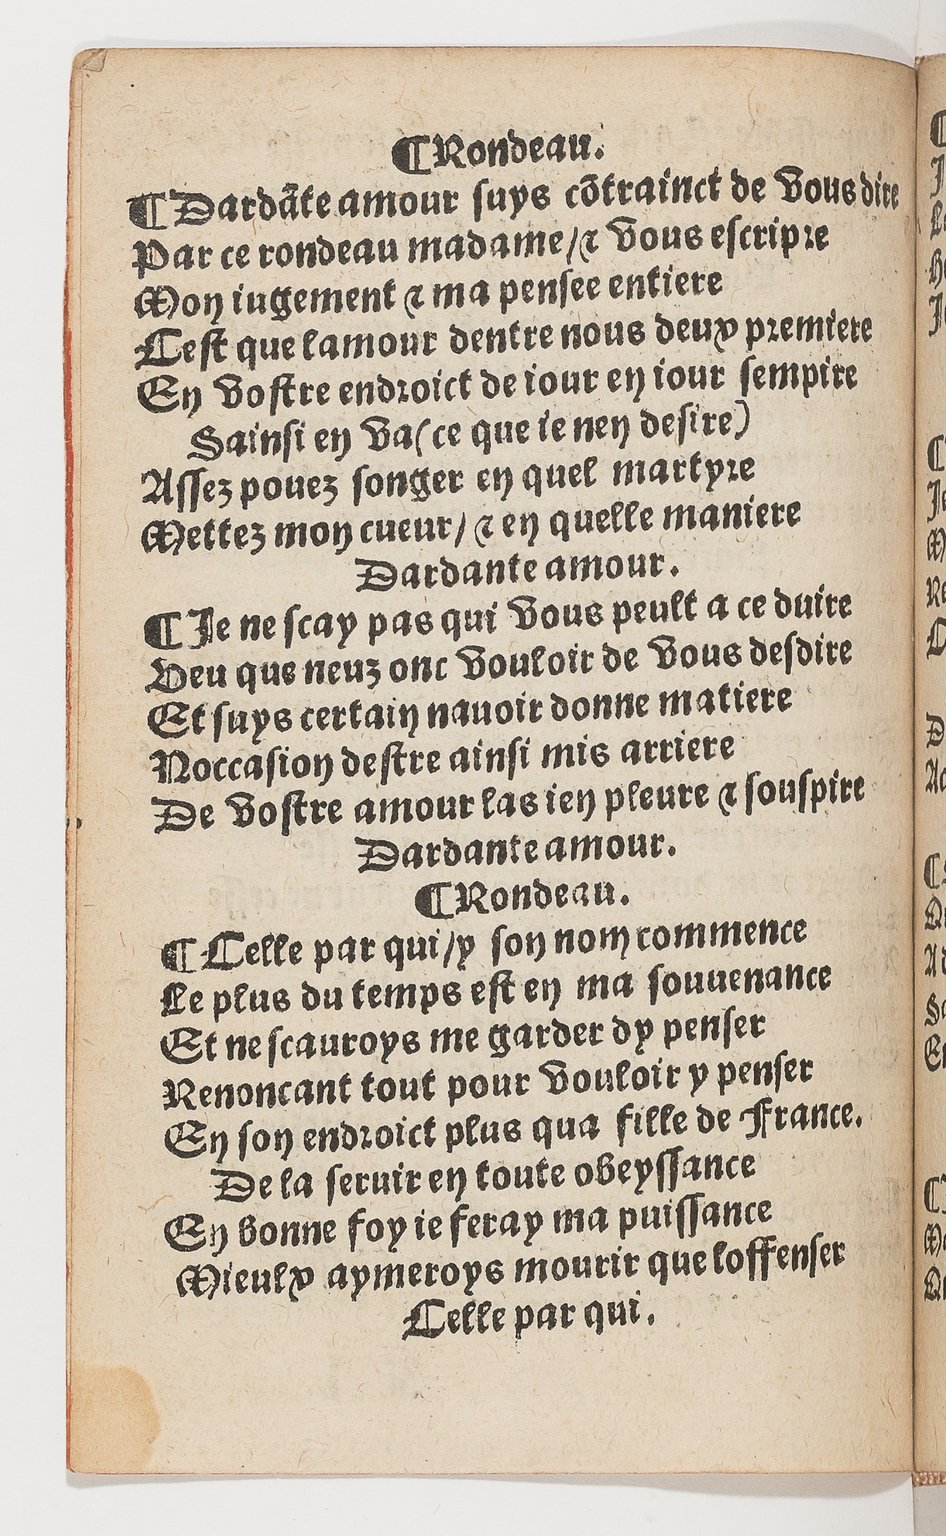 ¶Rondeau.
¶Dardãte amour suys cõtrainct de vous dire
Par ce rondeau madame/⁊ vous escripre
Mon iugement ⁊ ma pensee entiere
Cest que lamour dentre nous deux premiere
En vostre endroict de iour en iour sempire
Sainsi en va(ce que ie nen desire)
Assez pouez songer en quel martyre
Mettez mon cueur/ ⁊ en quelle maniere
Dardante amour.
¶Je ne scay pas qui vous peult a ce duire
Veu que neuz onc vouloir de vous desdire
Et suys certain nauoir donne matiere
Noccasion destre ainsi mis arriere
De vostre amour las ien pleure ⁊ souspire
Dardante amour.
¶Rondeau.
¶Celle par qui/y son nom commence
Le plus du temps est en ma souuenance
Et ne scauroys me garder dy penser
Renoncant tout pour vouloir y penser
En son endroict plus qua fille de France.
De la seruir en toute obeyssance
En bonne foy ie feray ma puissance
Mieulx aymeroys mourir que loffenser
Celle par qui.